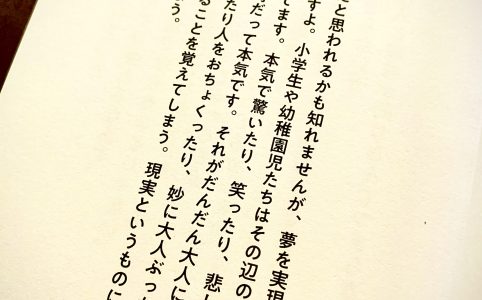 と思われるかも知れませんが、夢を実現
すよ。小学生や幼稚園児たちはその辺の
てます。本気で驚いたり、笑ったり、悲し
だって本気です。それがだんだん大人に
たり人をおちょくったり、妙に大人ぶっ
ることを覚えてしまう。現実というものに
う。